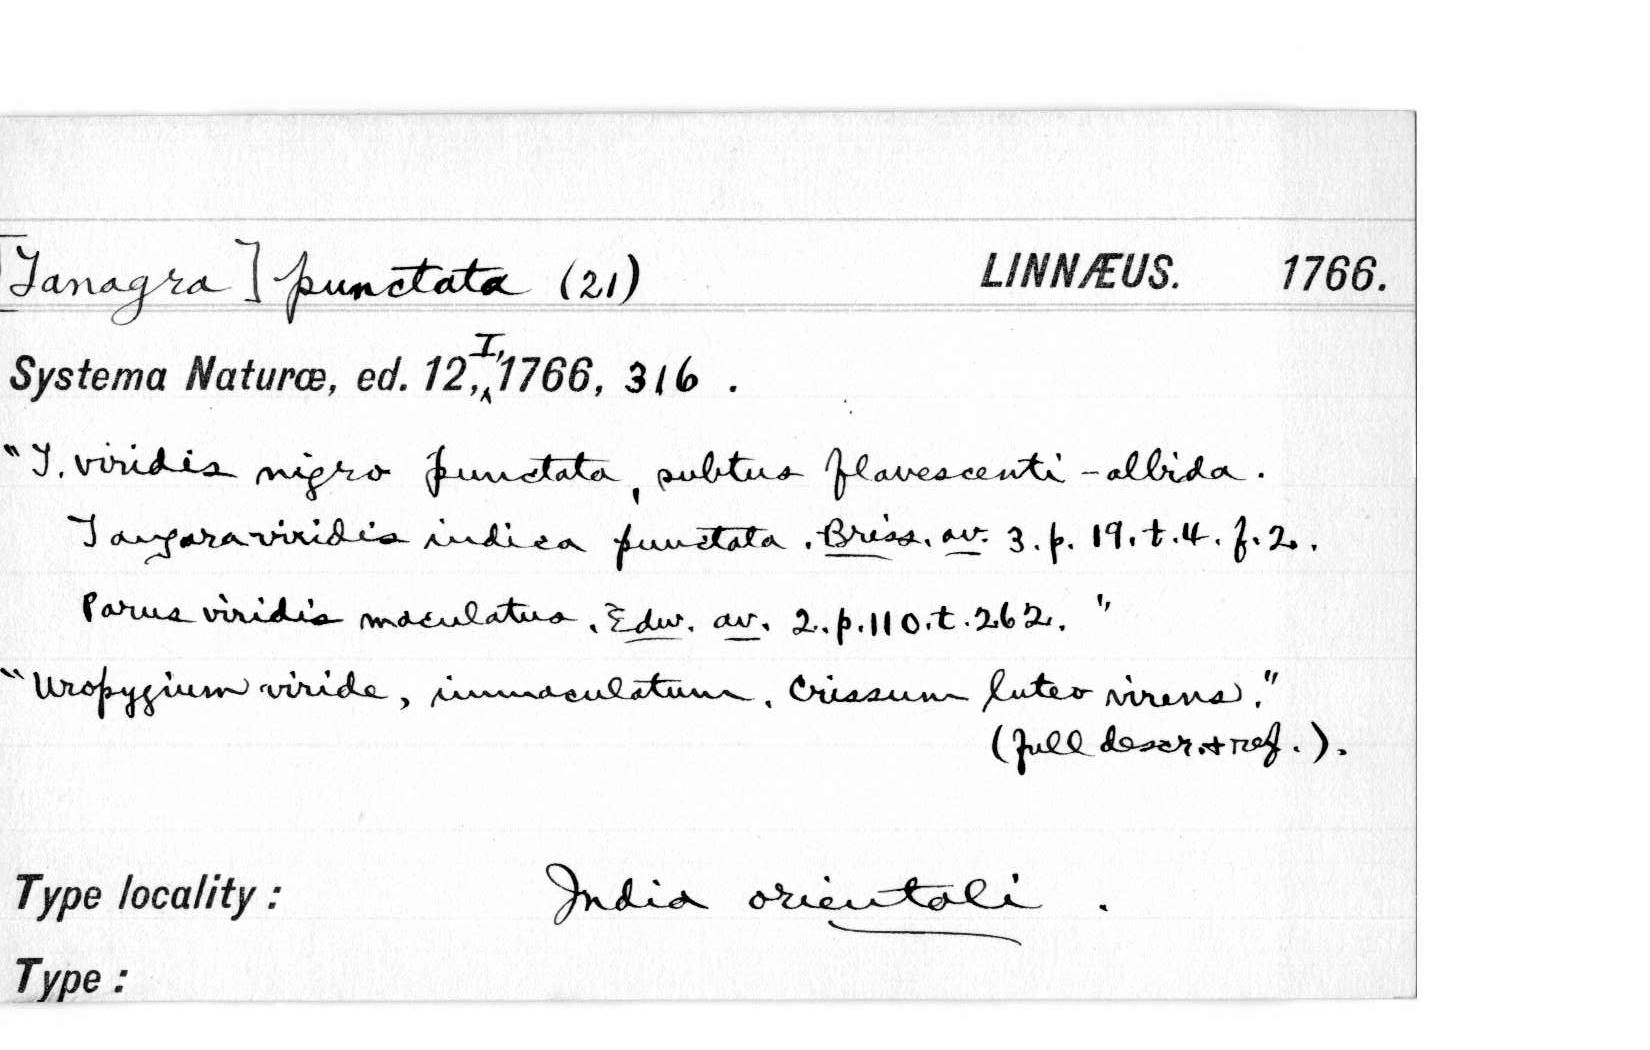 [Tanagra] punctata (21) LINNÆUS. 1766.
Systema Naturæ, ed. 12, I, 1766, 316 .
"T. viridis nigro punctata, subtus flavescenti-albida.
Tangara viridis indica punctata. Briss. av. 3. p. 19. t. 4. f. 2.
Parus viridis maculatus. Edw. av. 2. p. 110. t. 262. "
"Uropygium viride, immaculatum. Crissum luteo virens."
(full descr. + ref.).
Type locality: India orientali .
Type: